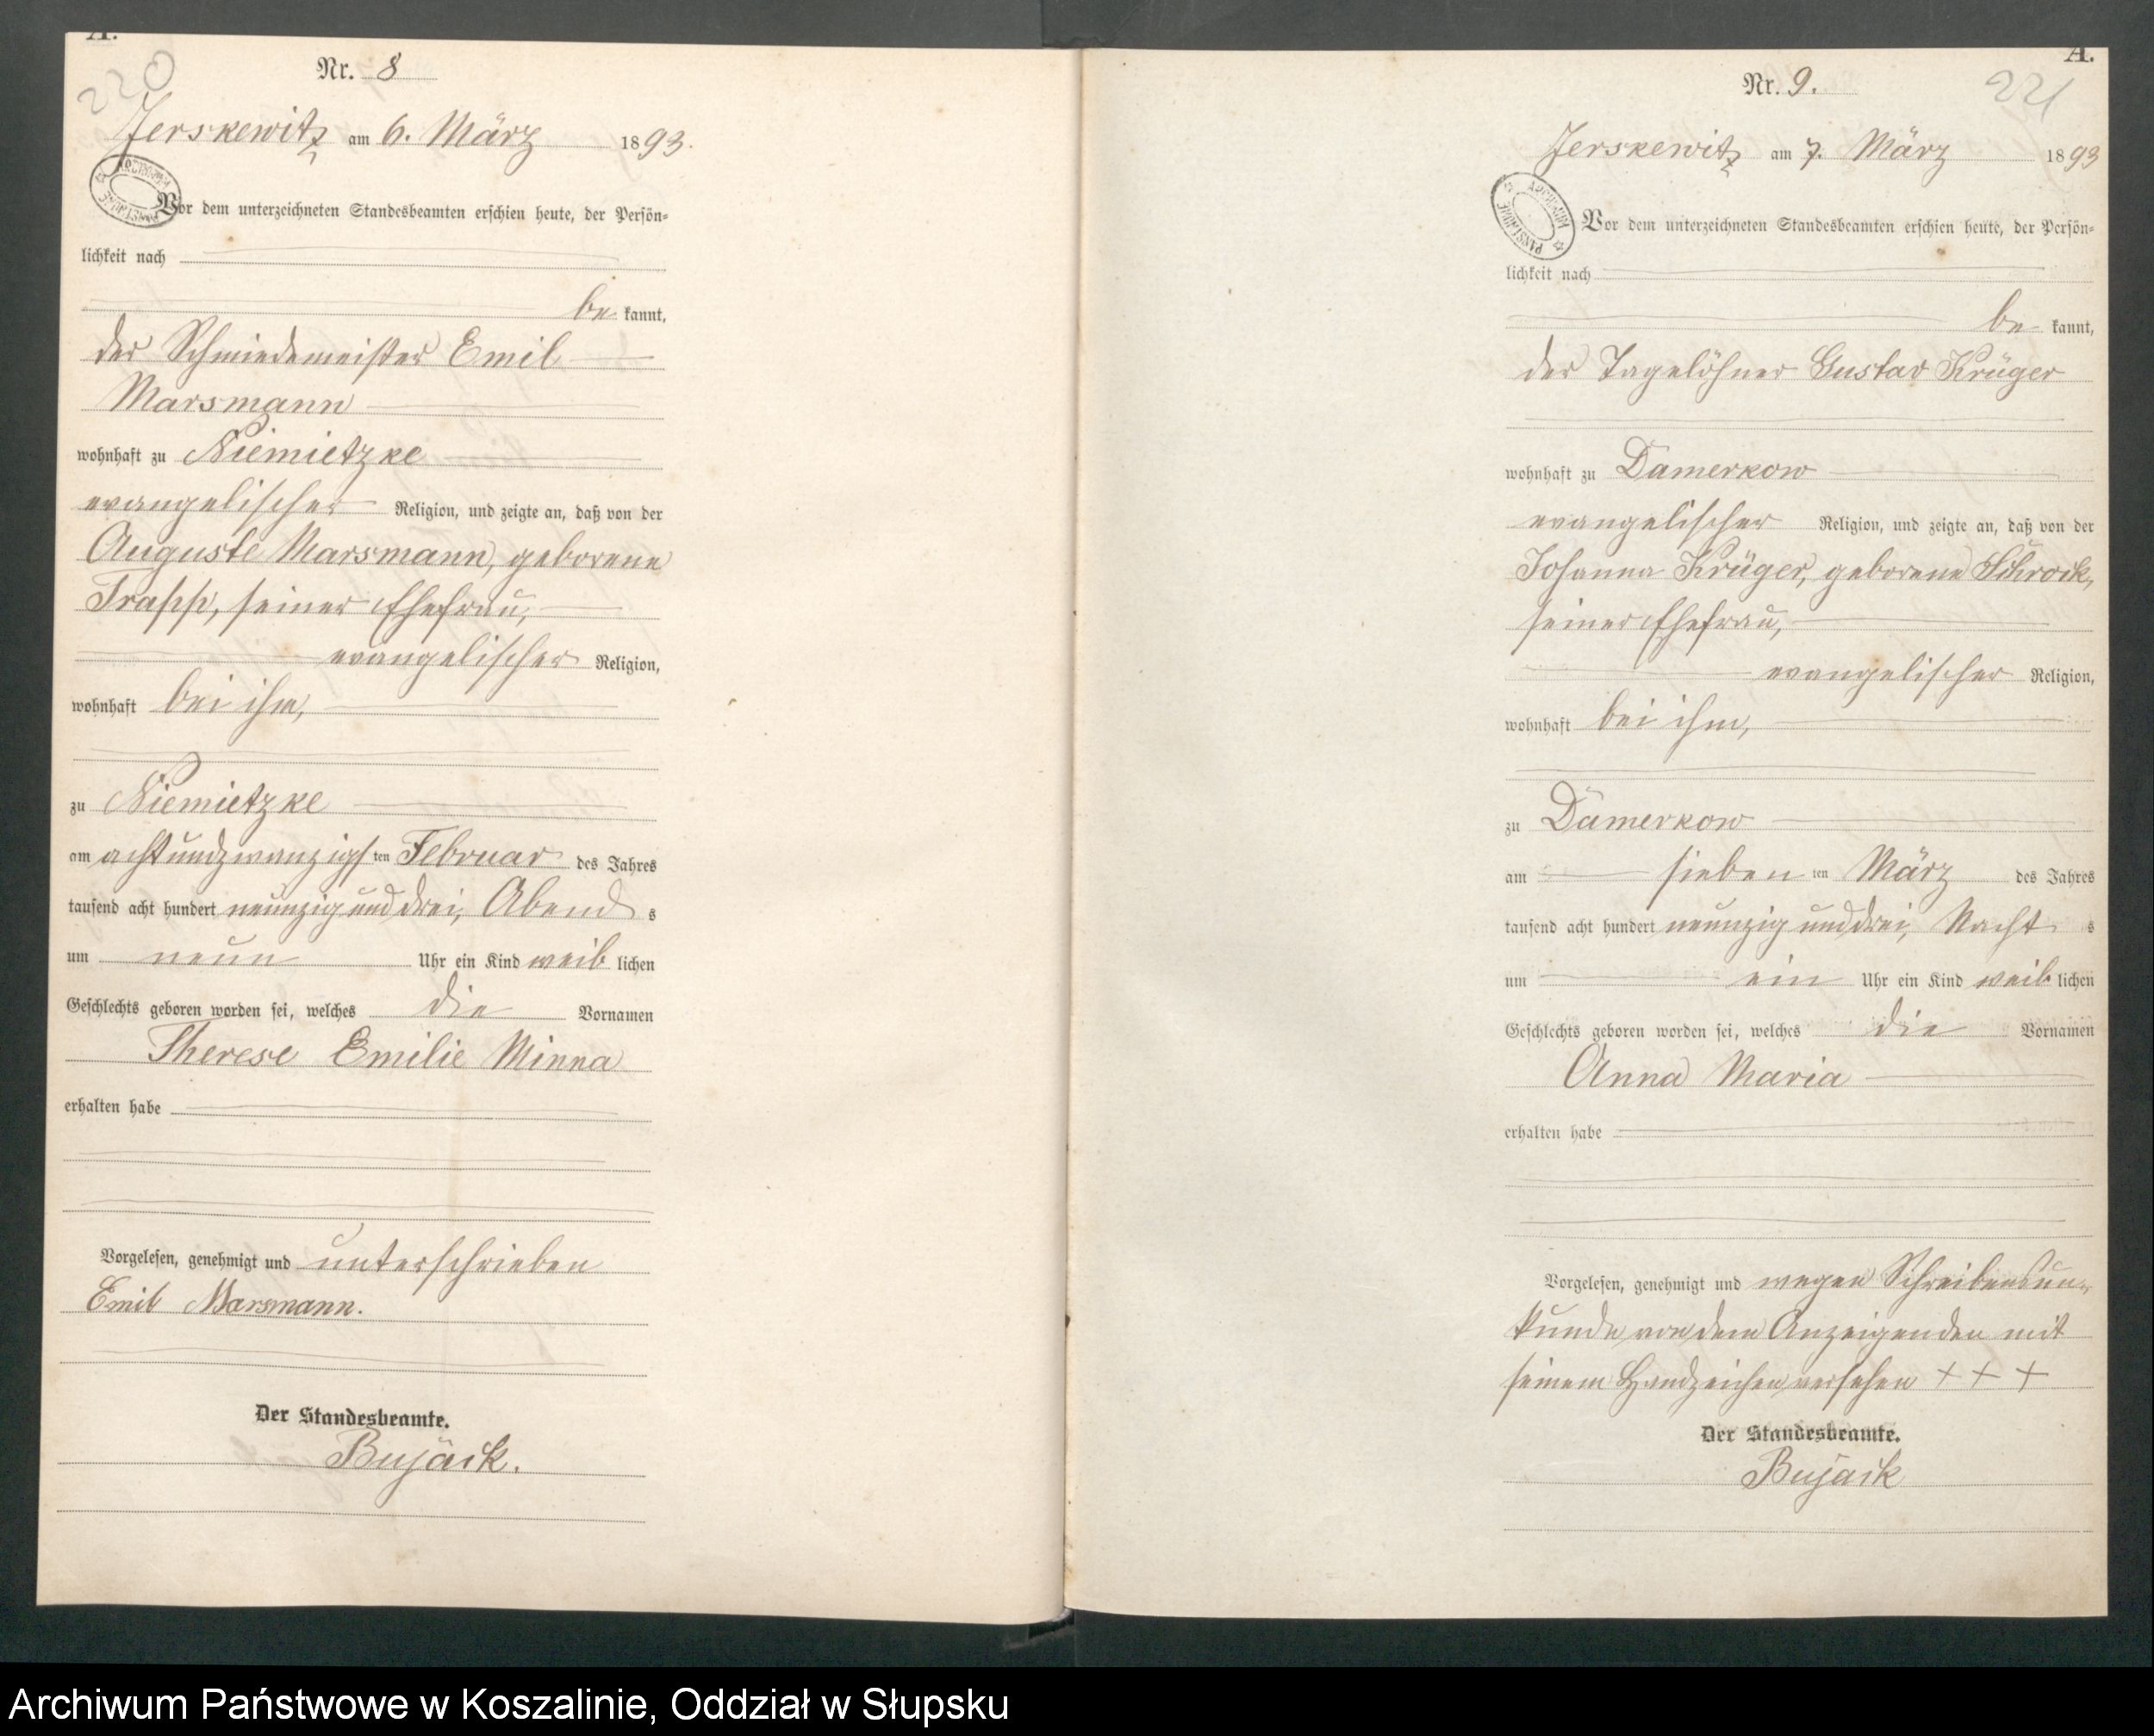 A.
220
Nr. 8
Jerskewitz am 6. März 1893.
Vor dem unterzeichneten Standesbeamten erschien heute, der Persön-
lichkeit nach
be kannt,
der Schmiedemeister Emil
Marsmann
wohnhaft zu Niemietzke
evangelischer Religion, und zeigte an, daß von der
Auguste Marsmann, geborene
Trapp, seiner Ehefrau,
evangelischer Religion,
wohnhaft bei ihm,
zu Niemietzke
am achtundzwanzigsten Februar des Jahres
tausend acht hundert neunzig und drei, Abends
um neun Uhr ein Kind weiblichen
Geschlechts geboren worden sei, welches die Vornamen
Therese Emilie Minna
erhalten habe
Vorgelesen, genehmigt und unterschrieben
Emil Marsmann.
Der Standesbeamte.
Bujack.
A.
221
Nr. 9.
Jerskewitz am 7. März 1893
Vor dem unterzeichneten Standesbeamten erschien heute, der Persön-
lichkeit nach
be kannt,
der Tagelöhner Gustav Krüger
wohnhaft zu Damerkow
evangelischer Religion, und zeigte an, daß von der
Johanna Krüger, geborene Schrock,
seiner Ehefrau,
evangelischer Religion,
wohnhaft bei ihm,
zu Damerkow
am siebenten März des Jahres
tausend acht hundert neunzig und drei, Nachts
um ein Uhr ein Kind weiblichen
Geschlechts geboren worden sei, welches die Vornamen
Anna Maria
erhalten habe
Vorgelesen, genehmigt und wegen Schreibensun-
kunde von dem Anzeigenden mit
seinem Handzeichen versehen + + +
Der Standesbeamte.
Bujack
Archiwum Państwowe w Koszalinie, Oddział w Słupsku